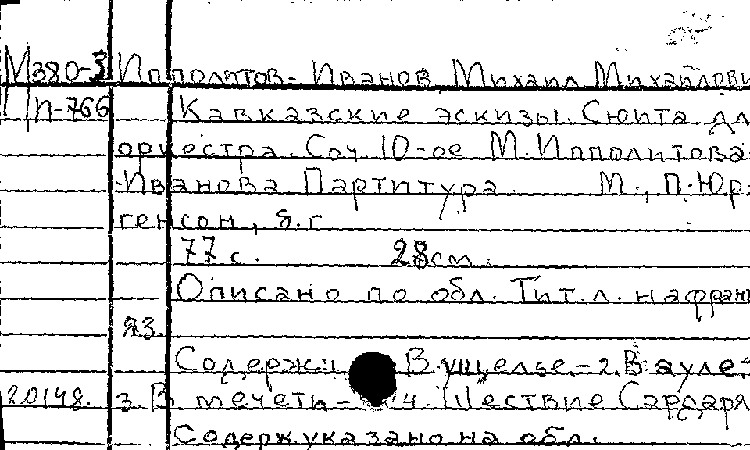 М380-3 Ипполитов-Иванов, Михаил Михайлови
П-766 Кавказские эскизы. Сюита дл
оркестра. Соч 10-ое М. Ипполитова-
Иванова Партитура М., П. Юр-
генсон, б.г
77 с. 28 см.
Описано по обл. Тит. л. на фран
яз.
Содерж: В ущелье.-2. В ауле-
20148. 3. В мечети- 4. Шествие Сардаря
Содерж. указано на обл.